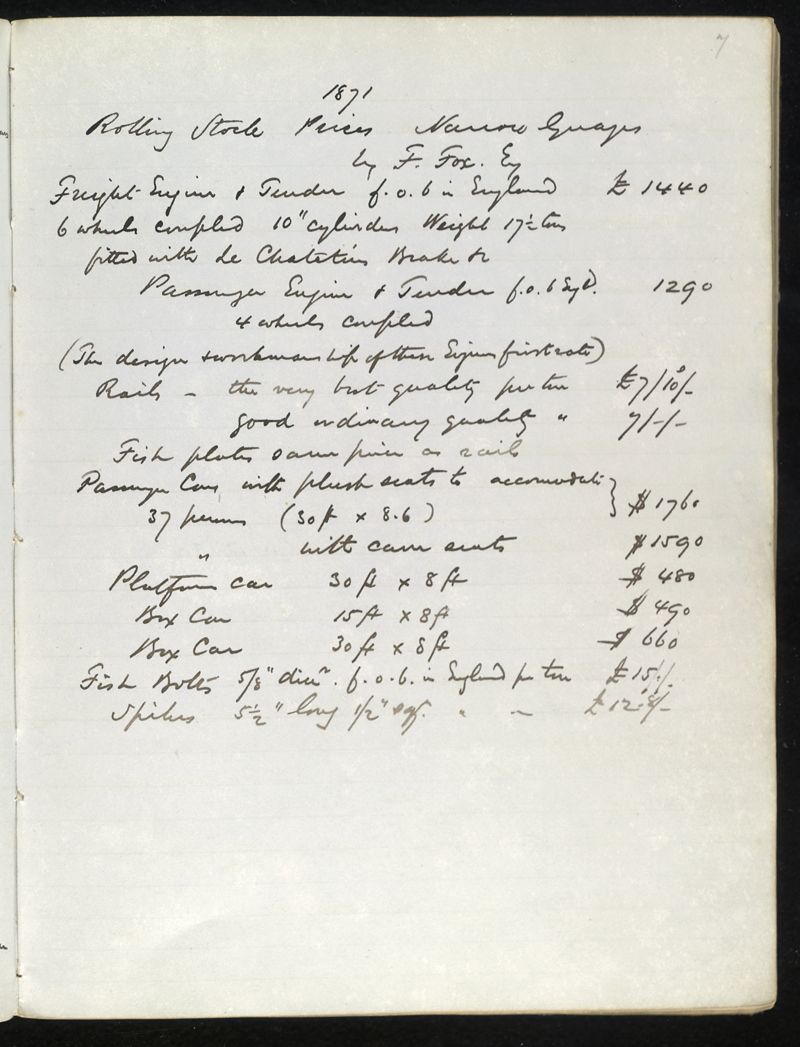 7
1871
Rolling Stock Prices Narrow Guages
by F. Fox. Esq
Freight Engine & Tender f.o.b in England £ 1440
6 wheels coupled 10" cylinders Weight 17½ tons
fitted with Le Chatetins Brake &c
Passenger Engine & Tender f.o.b Egd. 1290
4 wheels coupled
(The design & workmanship of these Engines first rate)
Rails - the very best quality per ton £7/10/-
good ordinary quality " 7/-/-
Fish plates same price as rails
Passenger Cars with plush seats to accomodate } $ 1760
37 persons (30ft x 8.6)
" with cane seats $ 1590
Platform car 30 ft x 8 ft $ 480
Box Car 15 ft x 8 ft $ 490
Box Car 30 ft x 8 ft $ 660
Fish Bolts 5/8" diar. f.o.b. in England per ton £ 15./.
Spikes 5½" long 1/2" sq. " " £ 12